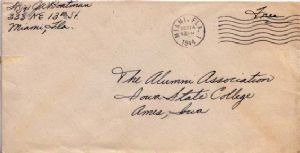 333 N.E. 13th St.
Miami, Fla.
MIAMI, FLA.
1944
Free
The Alumni Association
Iowa State College
Ames, Iowa